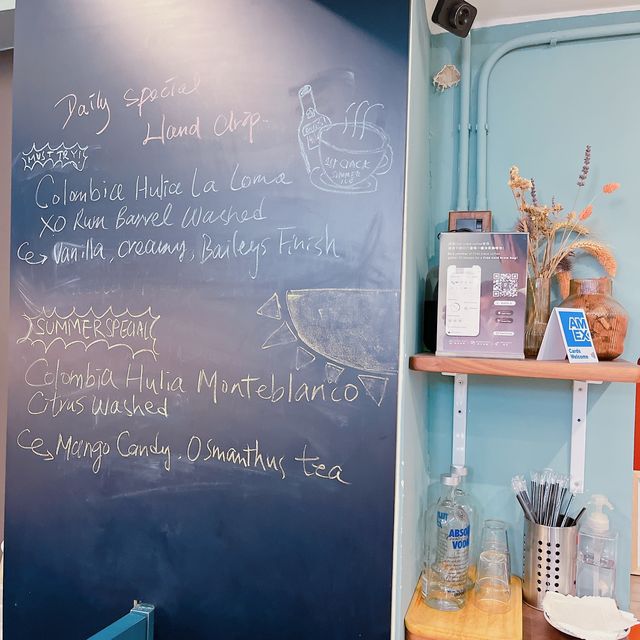 Daily special
Hand drip.
MUST TRY!!
Colombia Hulia La Loma
XO Rum Barrel Washed
Vanilla, creamy, Baileys Finish
1ST CRACK
SUMMER
ICE
SUMMER SPECIAL
Colombia Hulia Monteblanco
Citrus Washed
Mango Candy. Osmanthus tea
AM
EX
Cards
Welcome
ABSOLUT
VODKA